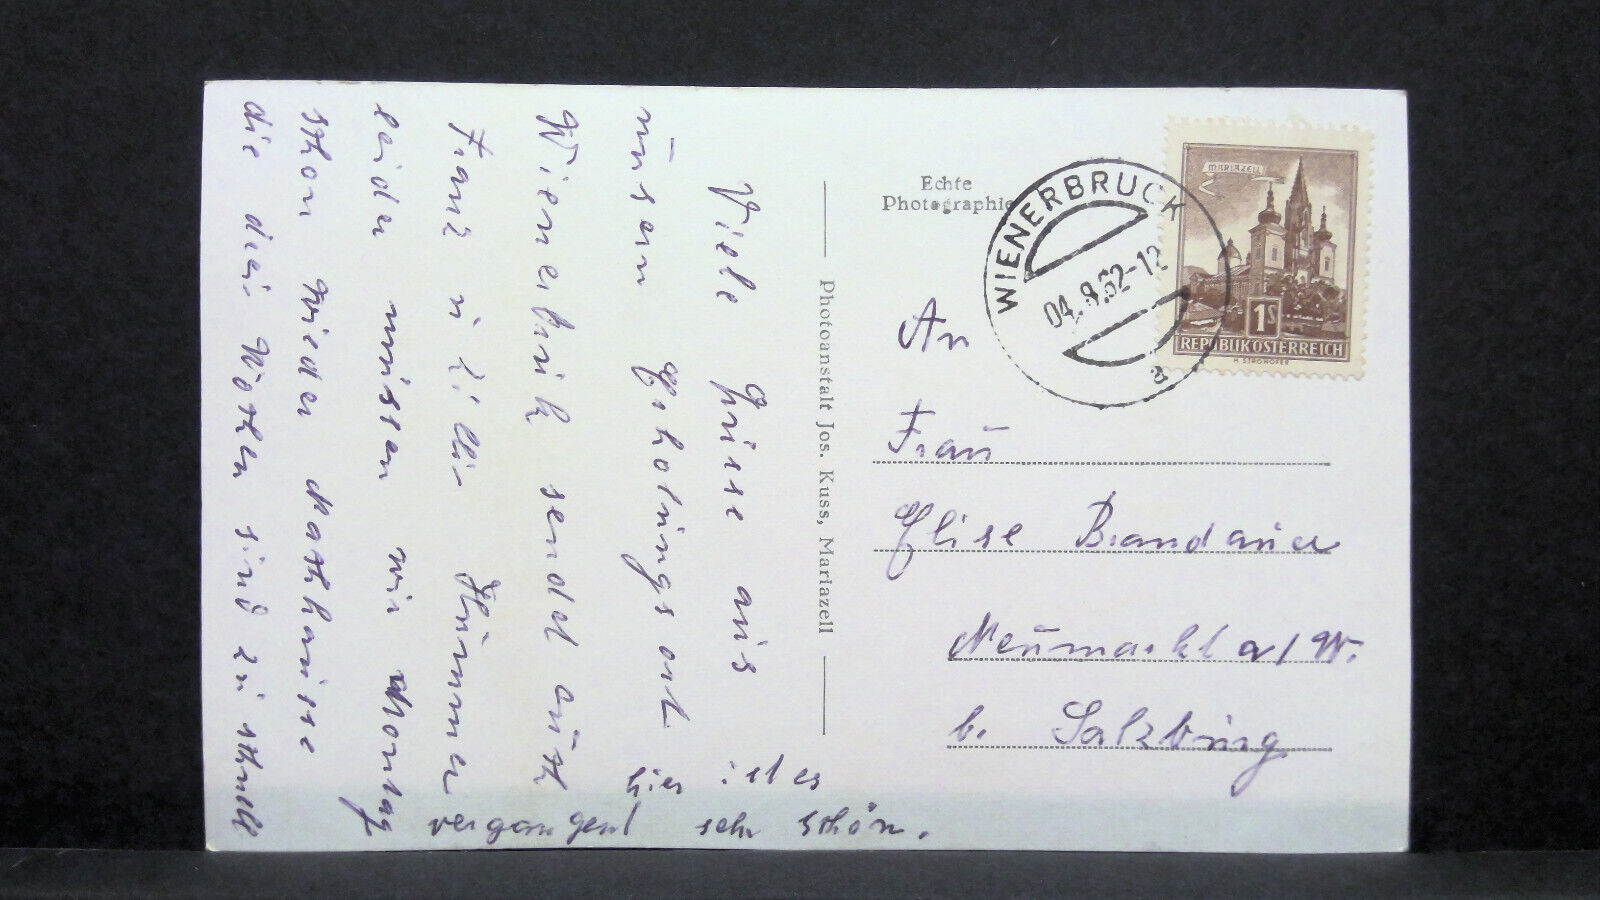 Viele Grüsse aus
unsern Erholungsort
Wienerbruck sendet auch
Franz u. Cilli Hummer
leider müssen wir Montag
schon wieder nachhause
die drei Wochen sind zu schnell
vergangen!
hier ist es
sehr schön.
Echte
Photographie
Photoanstalt Jos. Kuss, Mariazell
WIENERBRUCK
a
MARIAZELL
1S
REPUBLIK ÖSTERREICH
An
Frau
Elise Brandauer
Neumarkt a/W.
b. Salzburg